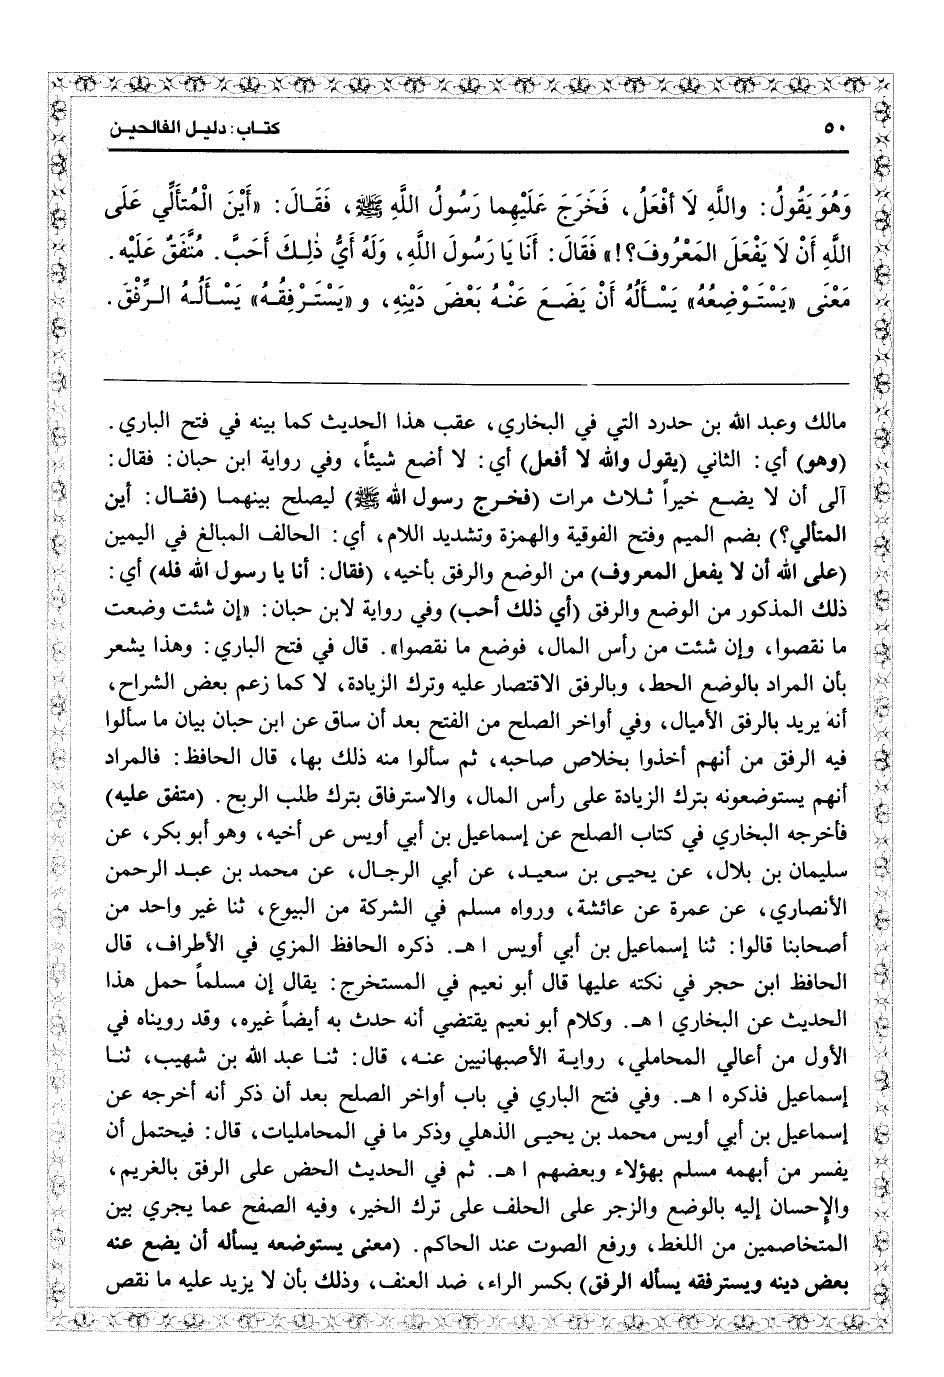 ٥٠
كتاب: دليل الفالحين
وَهُوَ يَقُولُ: واللَّهِ لَا أَفْعَلُ، فَخَرَجَ عَلَيْهِما رَسُولُ اللَّهِ ﷺ، فَقَالَ: «أَيْنَ الْمُتَأَلِّي عَلَى
اللَّهِ أَنْ لَا يَفْعَلَ المَعْرُوفَ؟!» فَقَالَ: أَنَا يَا رَسُولَ اللَّهِ، وَلَهُ أَيُّ ذٰلِكَ أَحَبَّ. مُتَّفَقٌ عَلَيْهِ.
مَعْنَى «يَسْتَوْضِعُهُ» يَسْأَلُهُ أَنْ يَضَعَ عَنْهُ بَعْضَ دَيْنِهِ، و «يَسْتَرْفِقُهُ» يَسْأَلُهُ الرِّفْقَ.
مالك وعبد الله بن حدرد التي في البخاري، عقب هذا الحديث كما بينه في فتح الباري.
(وهو) أي: الثاني (يقول والله لا أفعل) أي: لا أضع شيئاً، وفي رواية ابن حبان: فقال:
آلى أن لا يضع خيراً ثلاث مرات (فخرج رسول الله ﷺ) ليصلح بينهما (فقال: أين
المتألي؟) بضم الميم وفتح الفوقية والهمزة وتشديد اللام، أي: الحالف المبالغ في اليمين
(على الله أن لا يفعل المعروف) من الوضع والرفق بأخيه، (فقال: أنا يا رسول الله فله) أي:
ذلك المذكور من الوضع والرفق (أي ذلك أحب) وفي رواية لابن حبان: «إن شئت وضعت
ما نقصوا، وإن شئت من رأس المال، فوضع ما نقصوا». قال في فتح الباري: وهذا يشعر
بأن المراد بالوضع الحط، وبالرفق الاقتصار عليه وترك الزيادة، لا كما زعم بعض الشراح،
أنه يريد بالرفق الأميال، وفي أواخر الصلح من الفتح بعد أن ساق عن ابن حبان بيان ما سألوا
فيه الرفق من أنهم أخذوا بخلاص صاحبه، ثم سألوا منه ذلك بها، قال الحافظ: فالمراد
أنهم يستوضعونه بترك الزيادة على رأس المال، والاسترفاق بترك طلب الربح. (متفق عليه)
فأخرجه البخاري في كتاب الصلح عن إسماعيل بن أبي أويس عن أخيه، وهو أبو بكر، عن
سليمان بن بلال، عن يحيى بن سعيد، عن أبي الرجال، عن محمد بن عبد الرحمن
الأنصاري، عن عمرة عن عائشة، ورواه مسلم في الشركة من البيوع، ثنا غير واحد من
أصحابنا قالوا: ثنا إسماعيل بن أبي أويس ا هـ. ذكره الحافظ المزي في الأطراف، قال
الحافظ ابن حجر في نكته عليها قال أبو نعيم في المستخرج: يقال إن مسلماً حمل هذا
الحديث عن البخاري ا هـ. وكلام أبو نعيم يقتضي أنه حدث به أيضاً غيره، وقد رويناه في
الأول من أعالي المحاملي، رواية الأصبهانيين عنه، قال: ثنا عبد الله بن شهيب، ثنا
إسماعيل فذكره ا هـ. وفي فتح الباري في باب أواخر الصلح بعد أن ذكر أنه أخرجه عن
إسماعيل بن أبي أويس محمد بن يحيى الذهلي وذكر ما في المحامليات، قال: فيحتمل أن
يفسر من أبهمه مسلم بهؤلاء وبعضهم ا هـ. ثم في الحديث الحض على الرفق بالغريم،
والإِحسان إليه بالوضع والزجر على الحلف على ترك الخير، وفيه الصفح عما يجري بين
المتخاصمين من اللغط، ورفع الصوت عند الحاكم. (معنى يستوضعه يسأله أن يضع عنه
بعض دينه ويسترفقه يسأله الرفق) بكسر الراء، ضد العنف، وذلك بأن لا يزيد عليه ما نقص